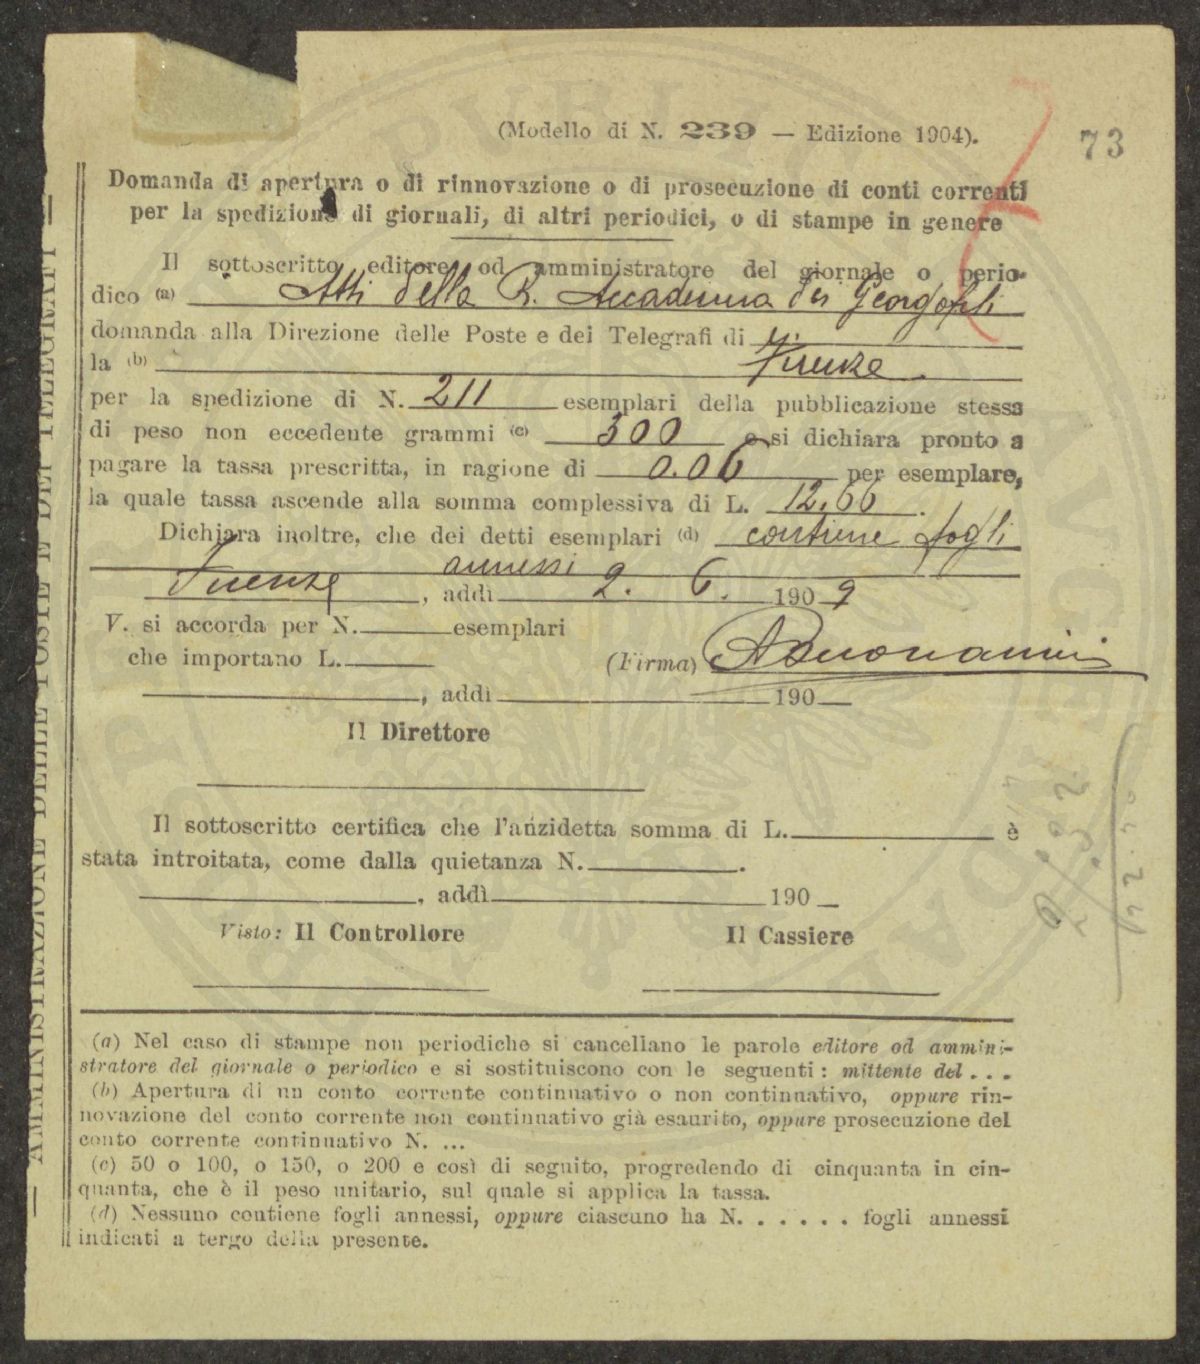 (Modello di N. 239 — Edizione 1904).
73
Domanda di apertura o di rinnovazione o di prosecuzione di conti correnti
per la spedizione di giornali, di altri periodici, o di stampe in genere
Il sottoscritto editore od amministratore del giornale o perio-
dico (a) Atti della R. Accademia dei Georgofili
domanda alla Direzione delle Poste e dei Telegrafi di
la (b) Firenze
per la spedizione di N. 211 esemplari della pubblicazione stessa
di peso non eccedente grammi (c) 300 e si dichiara pronto a
pagare la tassa prescritta, in ragione di 0.06 per esemplare,
la quale tassa ascende alla somma complessiva di L. 12,66.
Dichiara inoltre, che dei detti esemplari (d) contiene fogli
annessi
Firenze, addì 2. 6. 1909
V. si accorda per N. esemplari
che importano L.
(Firma) A Buonanini
, addì 190
Il Direttore
Il sottoscritto certifica che l'anzidetta somma di L. è
stata introitata, come dalla quietanza N. .
, addì 190
Visto: Il Controllore Il Cassiere
(a) Nel caso di stampe non periodiche si cancellano le parole editore od ammini-
stratore del giornale o periodico e si sostituiscono con le seguenti: mittente del . . .
(b) Apertura di un conto corrente continuativo o non continuativo, oppure rin-
novazione del conto corrente non continuativo già esaurito, oppure prosecuzione del
conto corrente continuativo N. ...
(c) 50 o 100, o 150, o 200 e così di seguito, progredendo di cinquanta in cin-
quanta, che è il peso unitario, sul quale si applica la tassa.
(d) Nessuno contiene fogli annessi, oppure ciascuno ha N. . . . . . . fogli annessi
indicati a tergo della presente.
— AMMINISTRAZIONE DELLE POSTE E DEI TELEGRAFI —